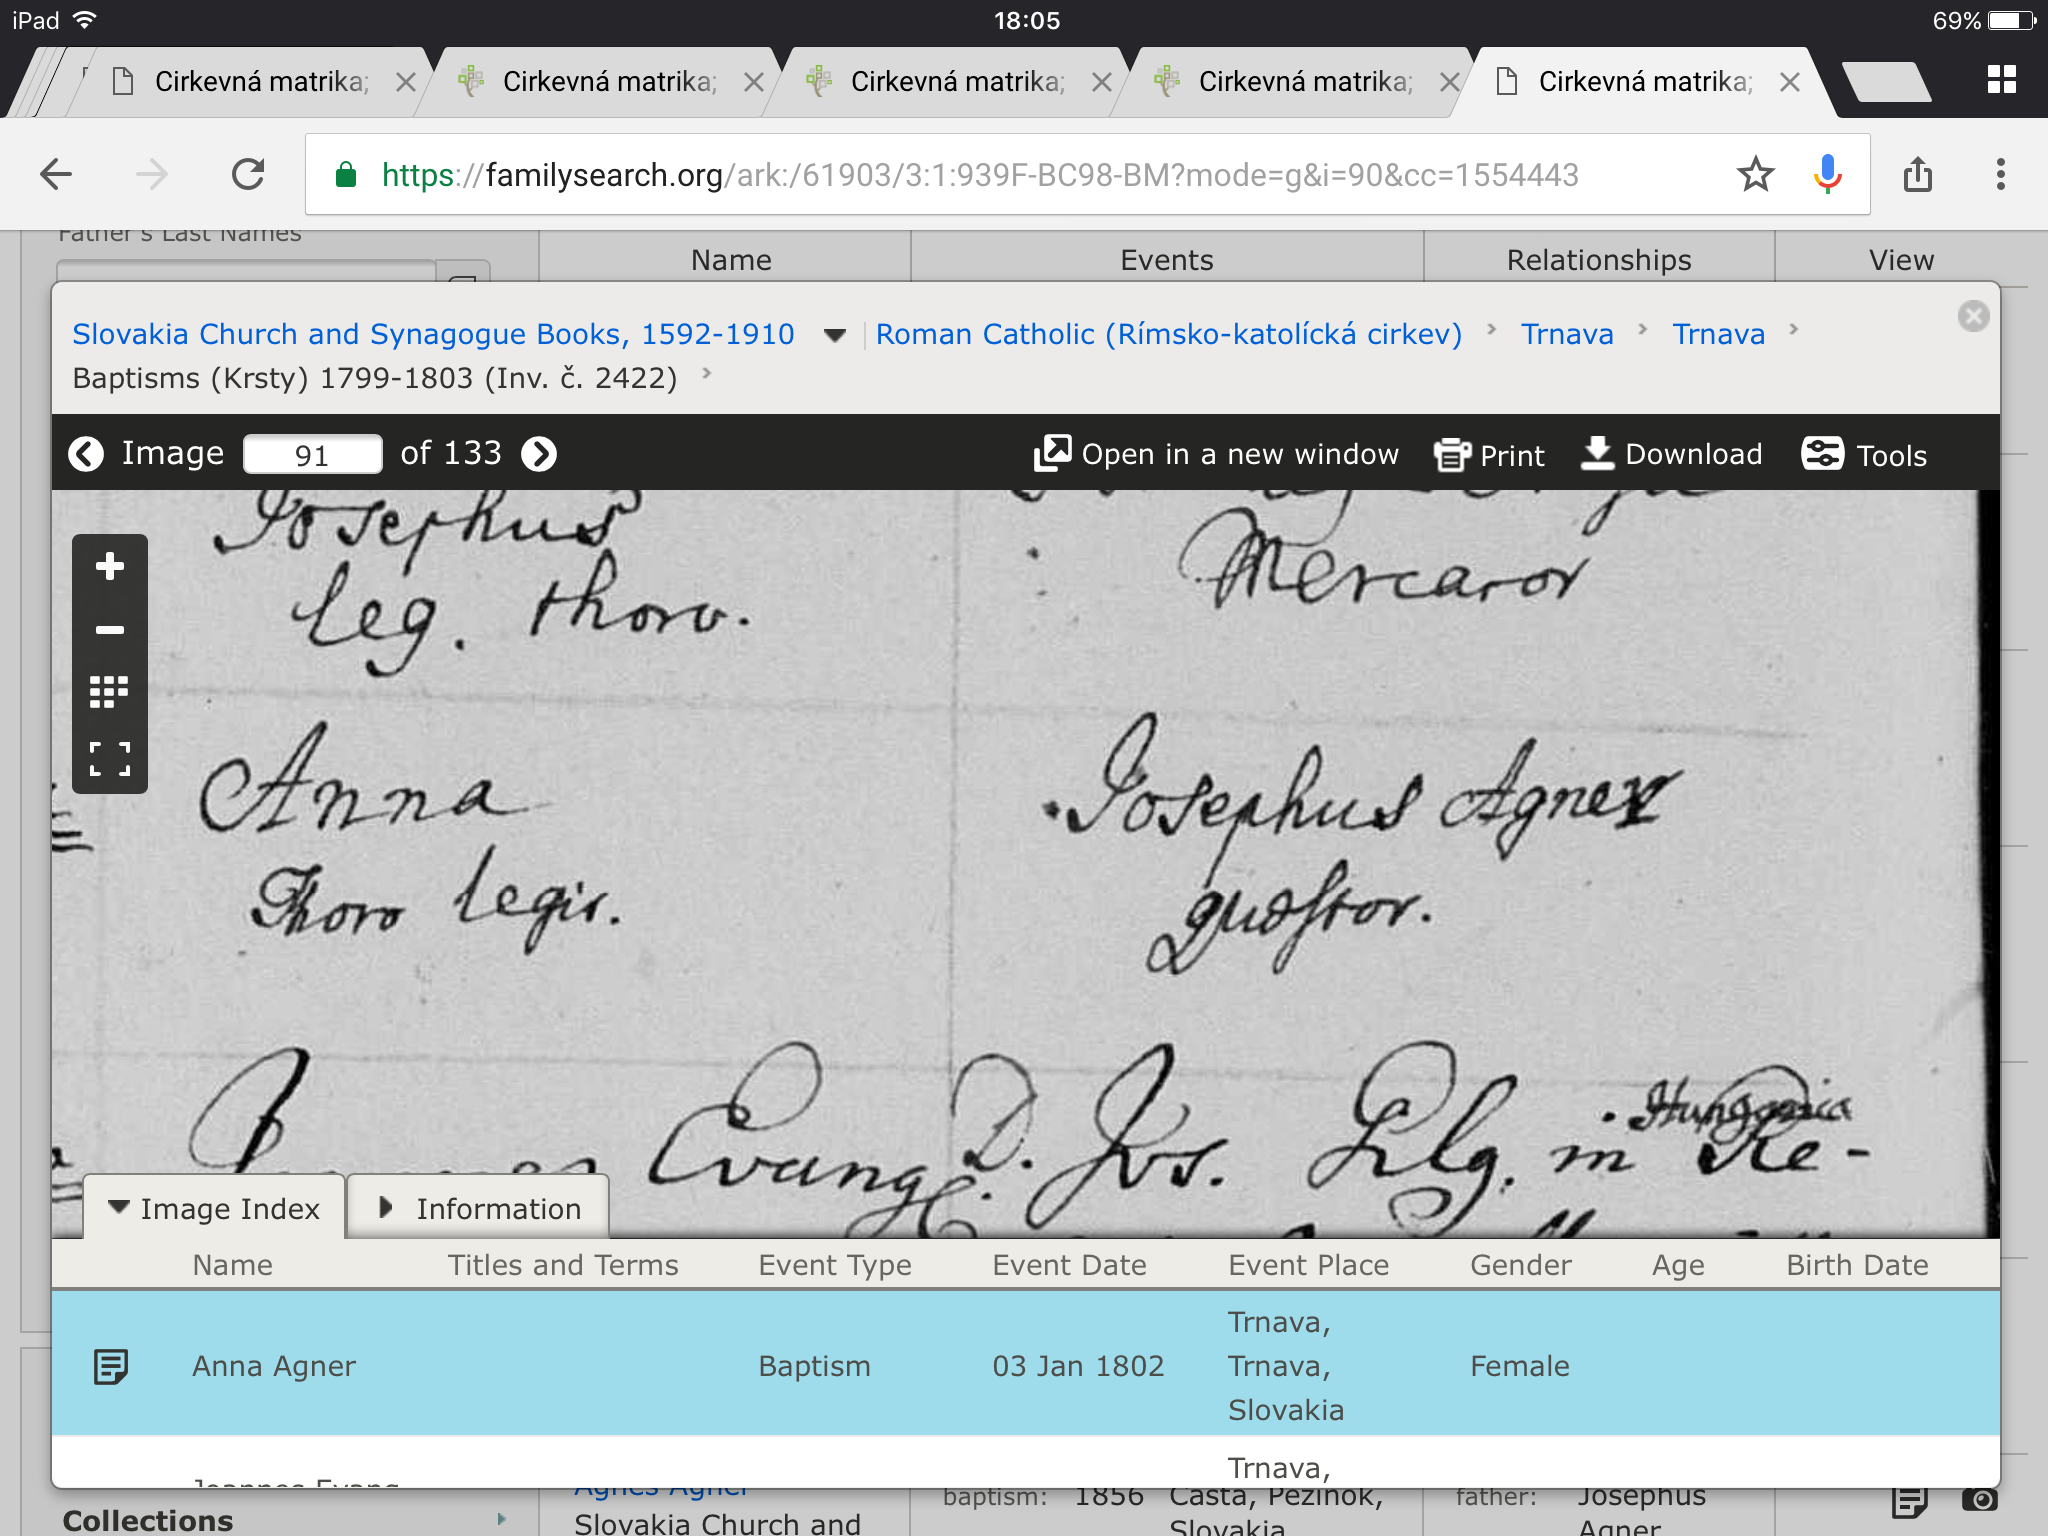 iPad 18:05 69%
Cirkevná matrika; Cirkevná matrika; Cirkevná matrika; Cirkevná matrika; Cirkevná matrika;
https://familysearch.org/ark:/61903/3:1:939F-BC98-BM?mode=g&i=90&cc=1554443
Father's Last Names
Name Events Relationships View
Slovakia Church and Synagogue Books, 1592-1910 Roman Catholic (Rímsko-katolícká cirkev) Trnava Trnava
Baptisms (Krsty) 1799-1803 (Inv. č. 2422)
Image 91 of 133 Open in a new window Print Download Tools
Josephus
Mercator
leg. thoro.
Anna Josephus Agner
Thoro legit. quæstor.
Evang. D. Jos. in Re-
Hungaria
Image Index Information
Name Titles and Terms Event Type Event Date Event Place Gender Age Birth Date
Anna Agner Baptism 03 Jan 1802 Trnava, Female
Trnava,
Slovakia
Joannes Evang Trnava,
Agnes Agner baptism: 1856 Casta, Pezinok, father: Josephus
Collections Slovakia Church and Slovakia Agner